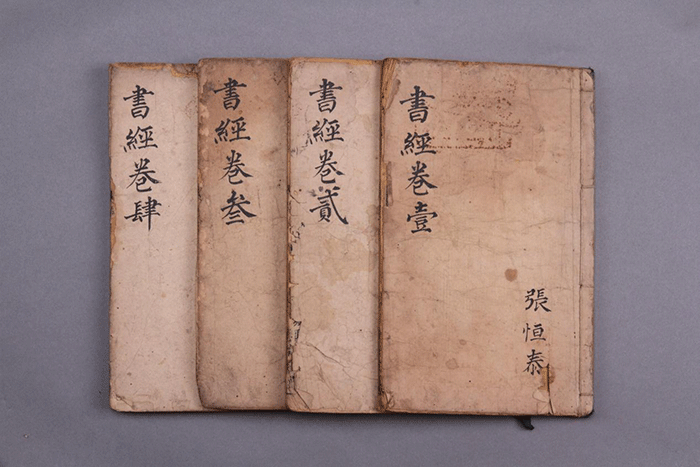 書經卷壹
張恒泰
書經卷貳
書經卷叁
書經卷肆